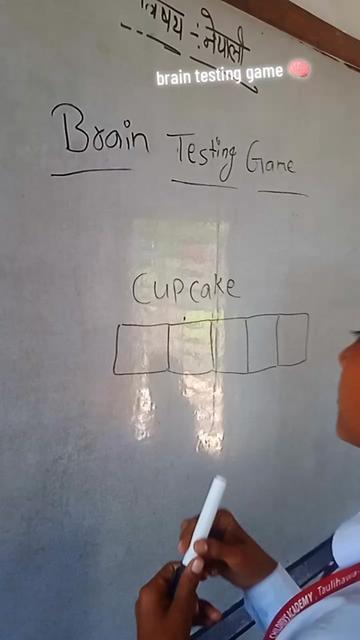 विषय :- नेपाली
brain testing game 🧠
Brain Testing Game
Cupcake
CHILDREN'S ACADEMY, Taulihawa